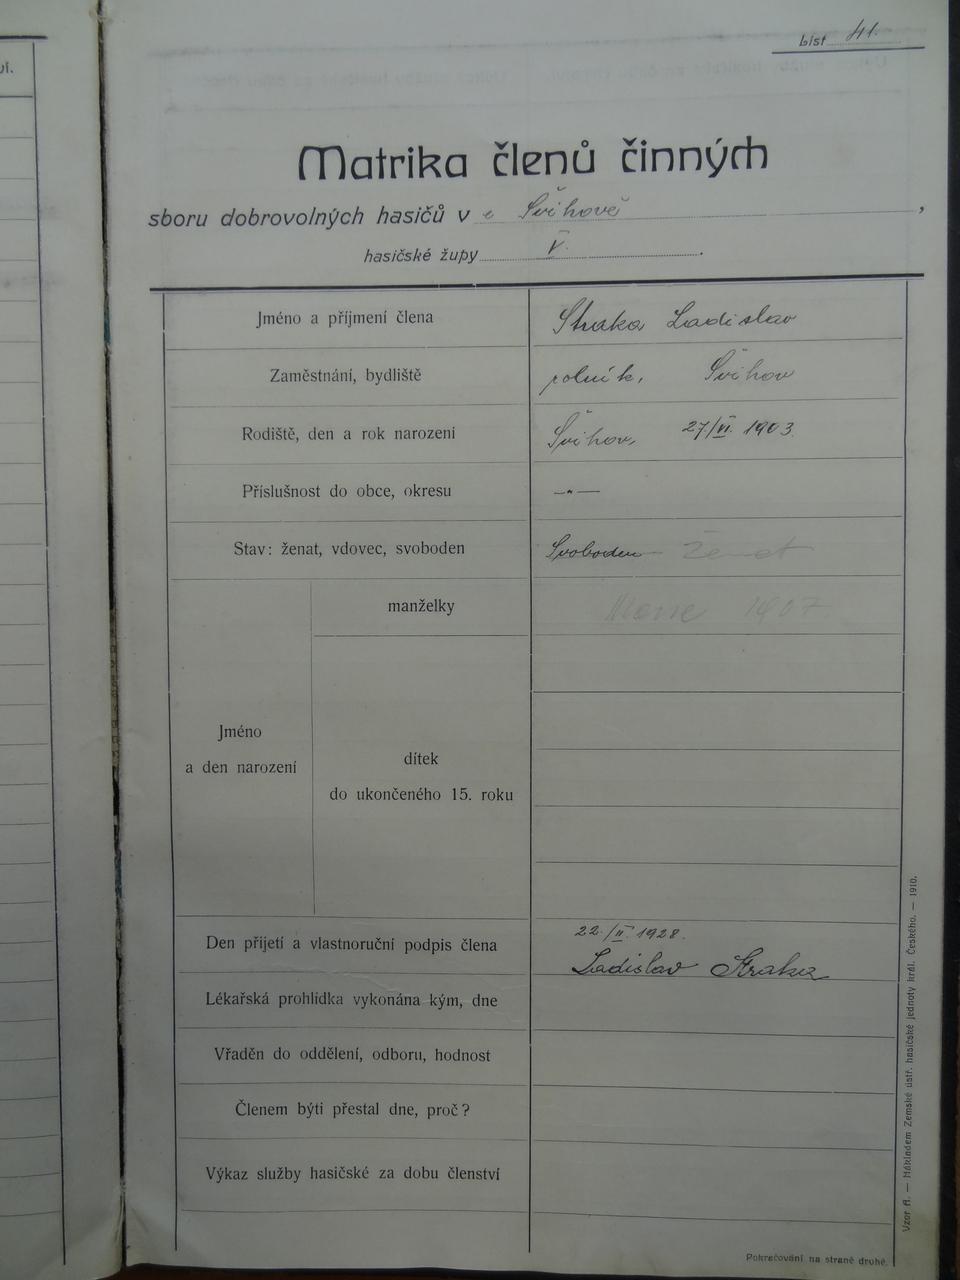 ví.
List 41.
Matrika členů činných
sboru dobrovolných hasičů v Švihově,
hasičské župy V.
Jméno a příjmení člena Straka Ladislav
Zaměstnání, bydliště rolník, Švihov
Rodiště, den a rok narození Švihov, 27/VI. 1903.
Příslušnost do obce, okresu —„—
Stav: ženat, vdovec, svoboden Svoboden Ženat
manželky Marie 1907
Jméno
a den narození
dítek
do ukončeného 15. roku
Den přijetí a vlastnoruční podpis člena 22./II. 1928.
Ladislav Straka
Lékařská prohlídka vykonána kým, dne
Vřaděn do oddělení, odboru, hodnost
Členem býti přestal dne, proč?
Výkaz služby hasičské za dobu členství
Pokračování na straně druhé.
Vzor A. — Nákladem Zemské ústř. hasičské jednoty král. Českého. — 1910.